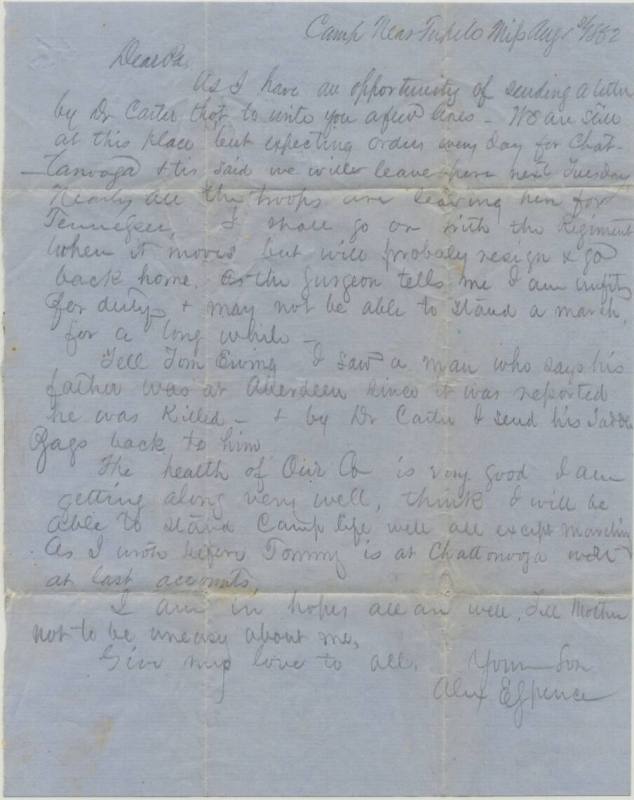 Camp Near Tupelo Miss Aug 1862
Dear Pa.
As I have an opportunity of sending a letter
by Dr Carter thot to write you a few lines - We are still
at this place but expecting orders every day for Chat-
-tanooga & tis said we will leave here next Tuesday
Nearly all the troops are leaving here for
Tennessee, I shall go on with the Regiment
when it moves but will probaly resign & go
back home. As the Surgeon tells me I am unfit
for duty & may not be able to stand a march,
for a long while -
Tell Tom Ewing I saw a man who says his
father was at Aberdeen since it was reported
he was Killed - & by Dr Carter I send his Saddle
Bags back to him
The health of Our Co is very good I am
getting along very well, think I will be
able to stand Camp life well all except marching
As I wrote before Tommy is at Chattonooga well
at last accounts
I am in hopes all are well. Tell Mother
not to be uneasy about me,
Give my love to all. Your Son
Alex E Spence